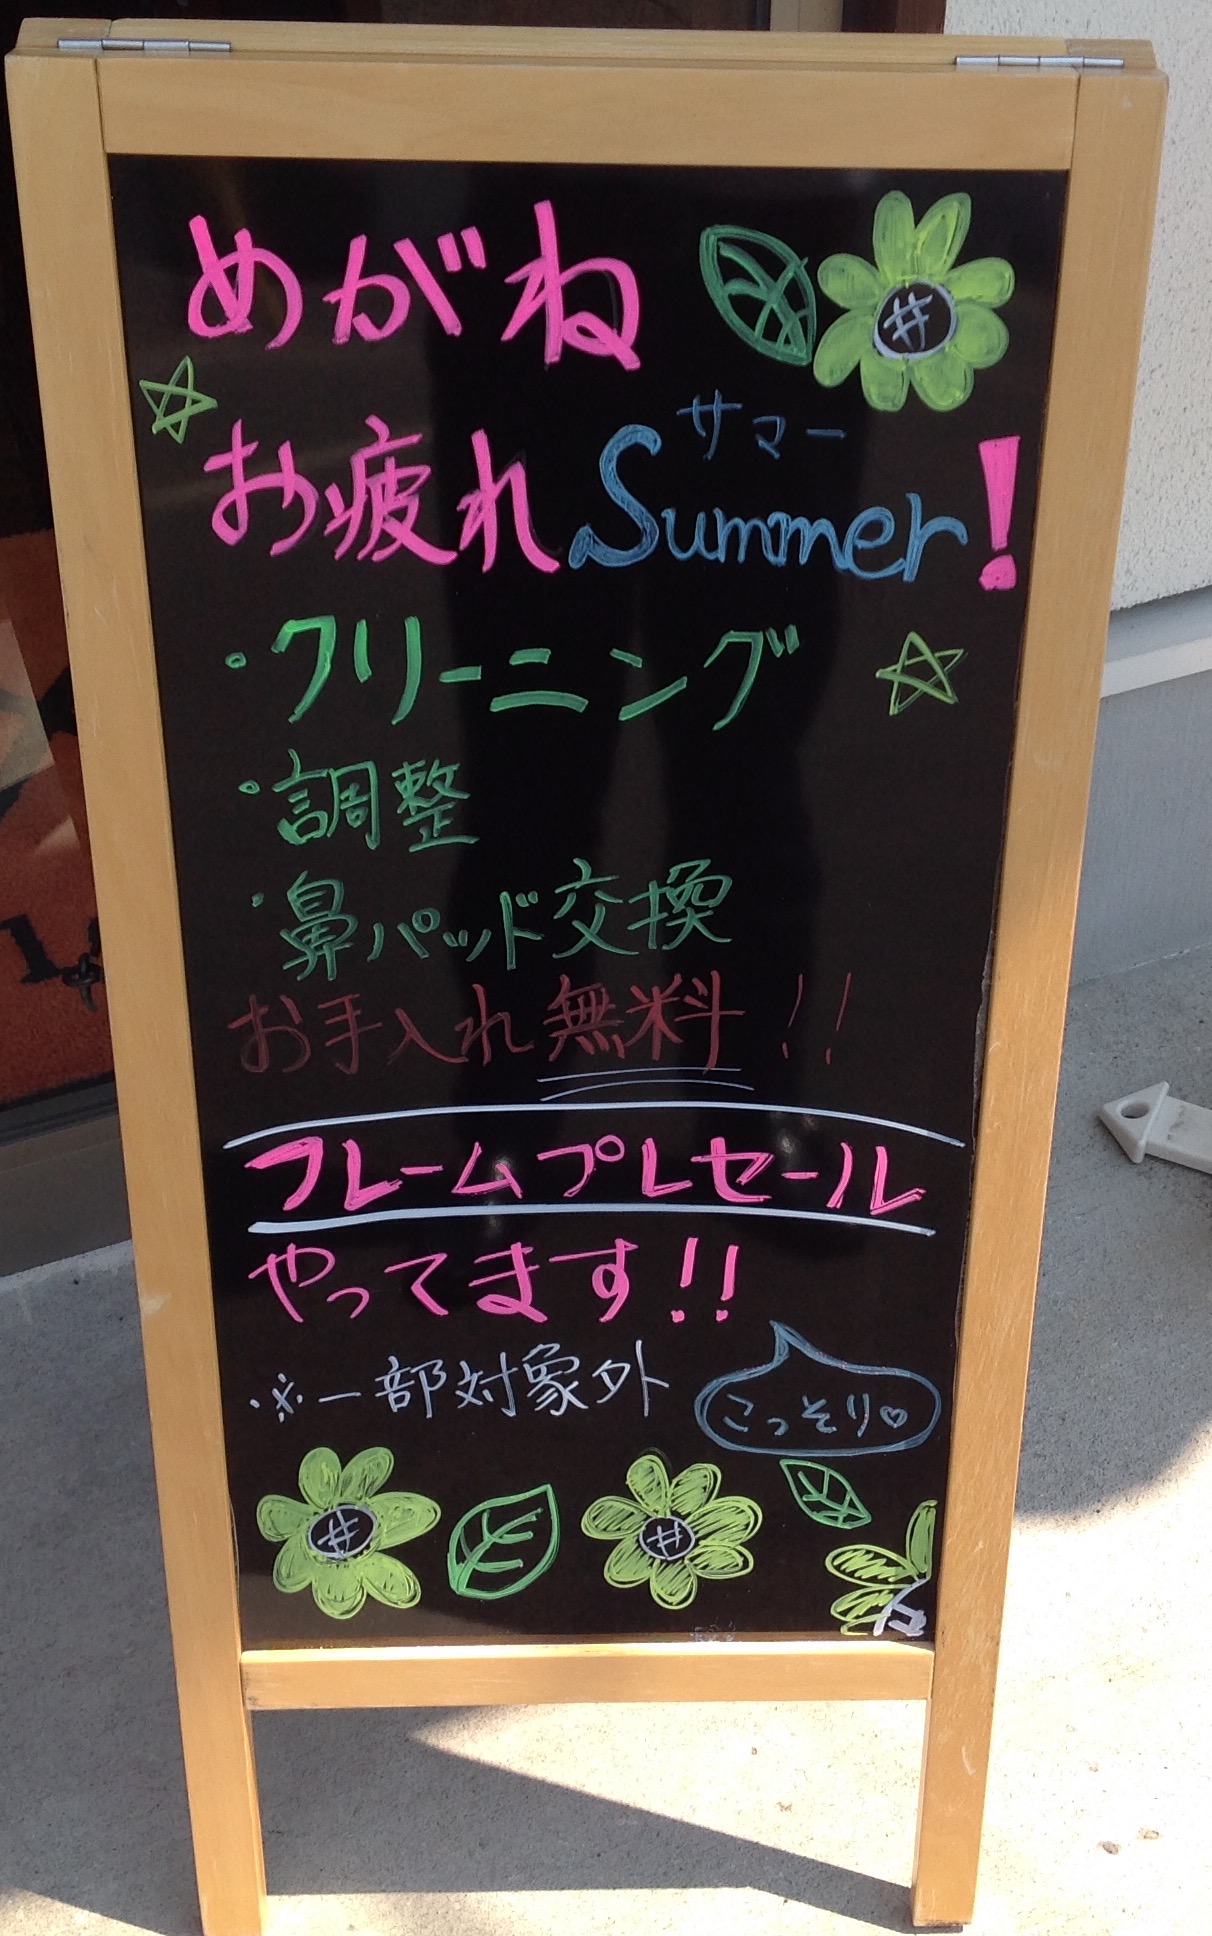 めがね
サマー
お疲れSummer!
・クリーニング
・調整
・鼻パッド交換
お手入れ無料!!
フレームプレセール
やってます!!
※一部対象外
こっそり♡